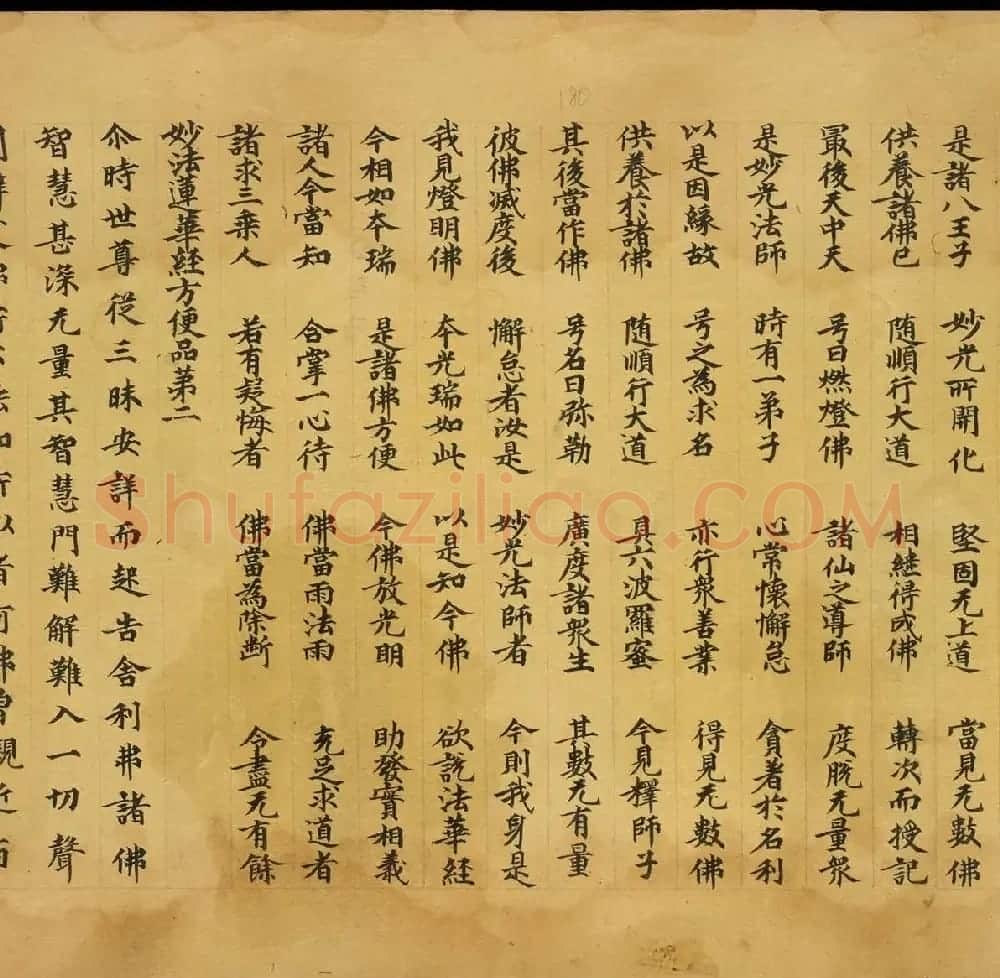 180
是諸八王子 妙光所開化 堅固无上道 當見无數佛
供養諸佛已 随順行大道 相継得成佛 轉次而授記
最後天中天 号曰燃燈佛 諸仙之導師 度脱无量衆
是妙光法師 時有一弟子 心常懷懈怠 貪著於名利
以是因緣故 号之為求名 亦行衆善業 得見无數佛
供養於諸佛 随順行大道 具六波羅蜜 今見釋師子
其後當作佛 号名曰弥勒 廣度諸衆生 其數无有量
彼佛滅度後 懈怠者汝是 妙光法師者 今則我身是
我見燈明佛 本光瑞如此 以是知今佛 欲說法華經
今相如本瑞 是諸佛方便 今佛放光明 助發實相義
諸人今當知 合掌一心待 佛當雨法雨 充足求道者
諸求三乗人 若有疑悔者 佛當為除断 令盡无有餘
妙法蓮華經方便品第二
尒時世尊從三昧安詳而起告舍利弗諸佛
智慧甚深无量其智慧門難解難入一切聲
知所以者何佛曾親近百
Shufaziliao.COM